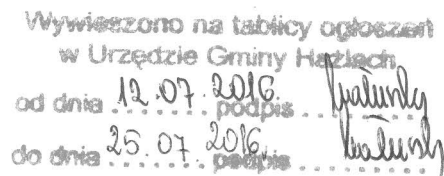 Wywieszono na tablicy ogłoszeń
w Urzędzie Gminy Hażlach
od dnia 12.07.2016. podpis
do dnia 25.07.2016. podpis